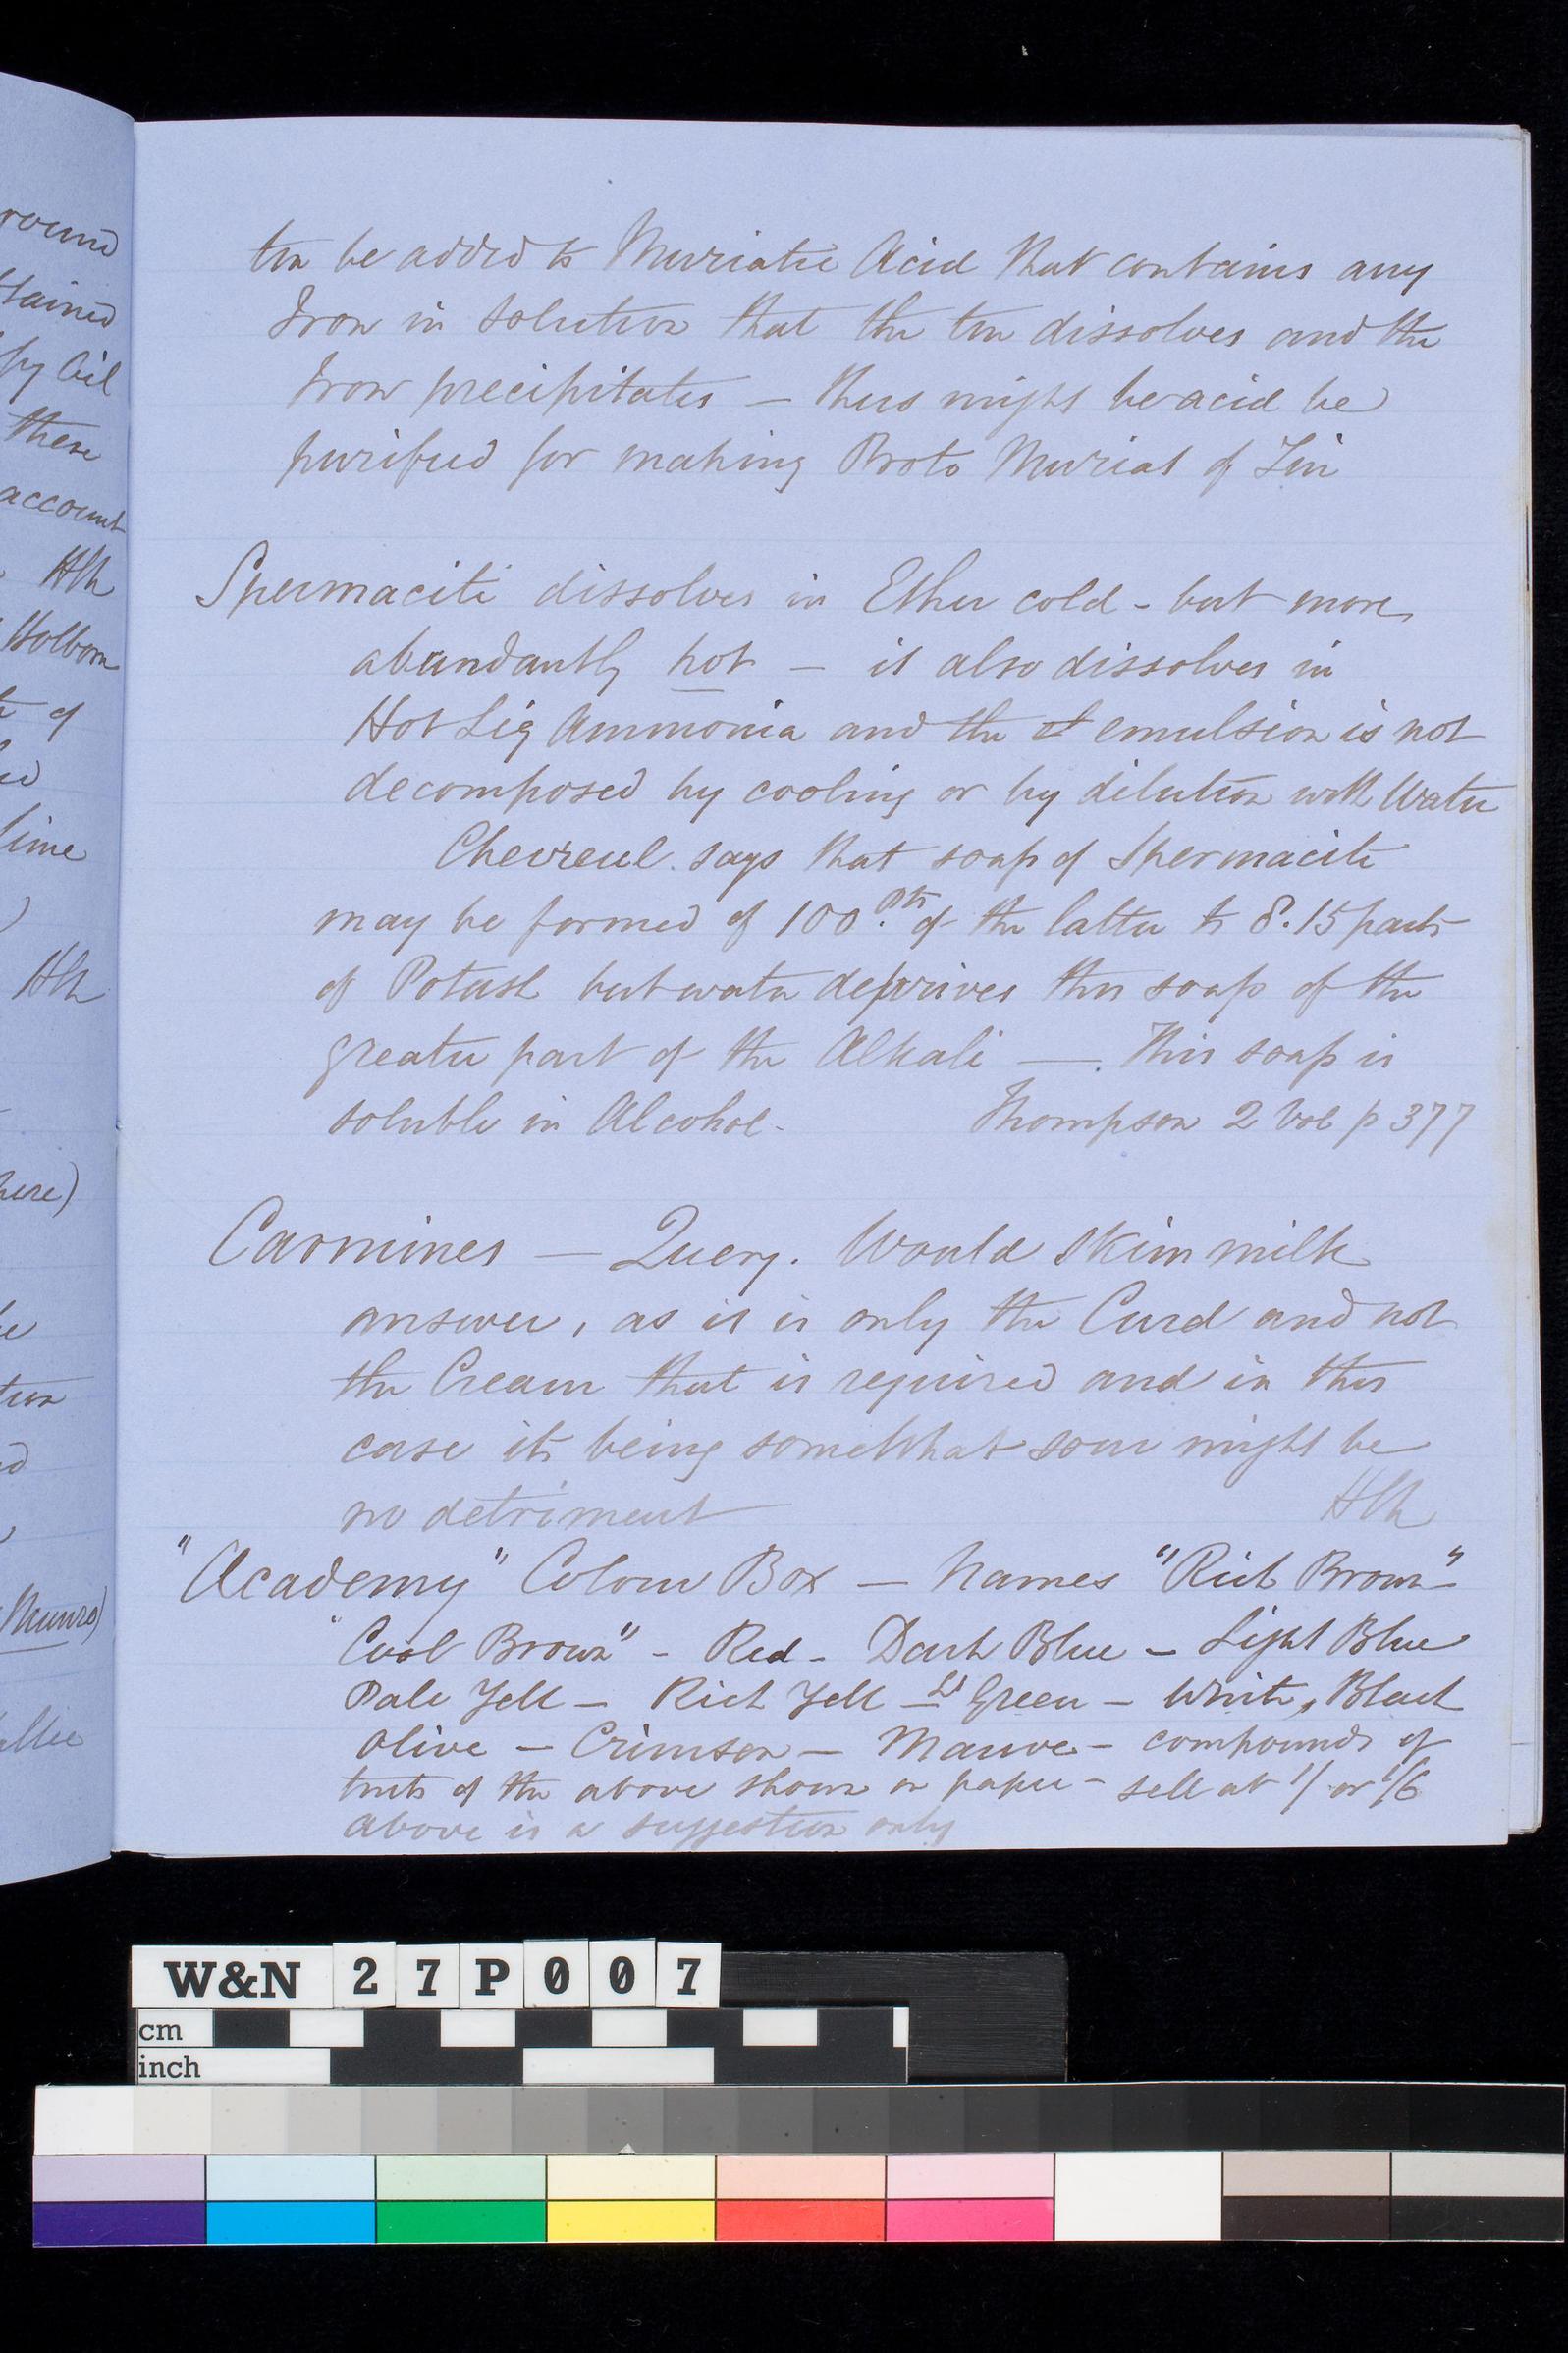 round
tained
py Oil
these
account
HCh
Holborn
of
lime
)
HCh
here)
tion
Munro)
tin be added to Muriatic Acid that contains any
Iron in solution that the tin dissolves and the
Iron precipitates — thus might be acid be
purified for making Proto Muriat of Tin
Spermaciti dissolves in Ether cold - but more
abundantly hot — it also dissolves in
Hot Liq Ammonia and the emulsion is not
decomposed by cooling or by dilution with Water
Chevreul says that soap of Spermaciti
may be formed of 100 pts of the latter to 8.15 parts
of Potash but water deprives this soap of the
greater part of the Alkali —. This soap is
soluble in Alcohol. Thompson 2 Vol p 377
Carmines — Query. Would skim milk
answer, as it is only the Curd and not
the Cream that is required and in this
case its being somewhat sour might be
no detriment HCh
"Academy" Colour Box — Names "Rich Brown"
"Cool Brown" - Red - Dark Blue — Light Blue
Pale Yell — Rich Yell — Green — White, Black
Olive — Crimson — Mauve - compounds of
tints of the above shown on paper - sell at 1/ or 1/6
above is a suggestion only
W&N 27P007
cm
inch